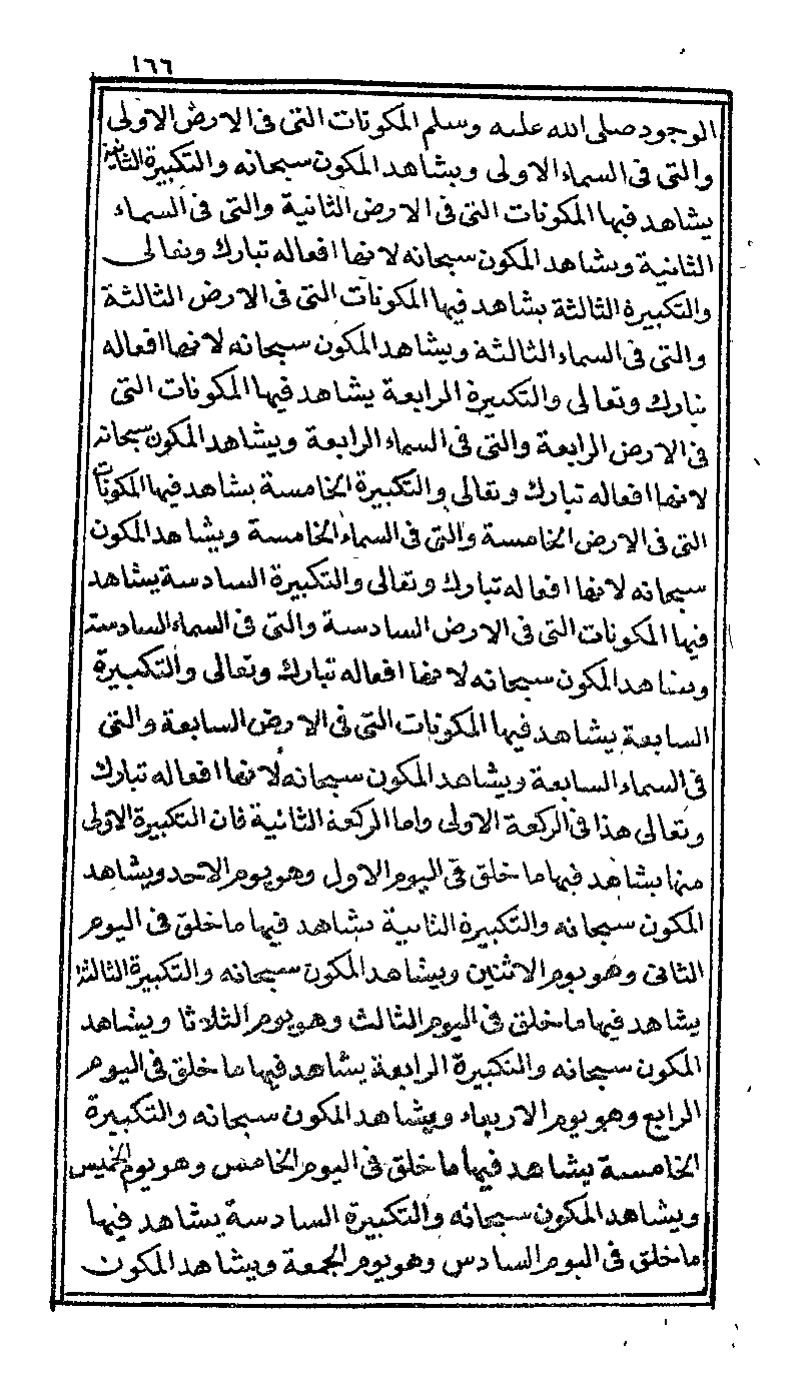 ١٦٦
الوجود صلى الله عليه وسلم المكونات التى فى الارض الاولى
والتى فى السماء الاولى ويشاهد المكون سبحانه والتكبيرة الثانية
يشاهد فيها المكونات التى فى الارض الثانية والتى فى السماء
الثانية ويشاهد المكون سبحانه لانها افعاله تبارك وتعالى
والتكبيرة الثالثة يشاهد فيها المكونات التى فى الارض الثالثة
والتى فى السماء الثالثة ويشاهد المكون سبحانه لانها افعاله
تبارك وتعالى والتكبيرة الرابعة يشاهد فيها المكونات التى
فى الارض الرابعة والتى فى السماء الرابعة ويشاهد المكون سبحانه
لانها افعاله تبارك وتعالى والتكبيرة الخامسة يشاهد فيها المكونات
التى فى الارض الخامسة والتى فى السماء الخامسة ويشاهد المكون
سبحانه لانها افعاله تبارك وتعالى والتكبيرة السادسة يشاهد
فيها المكونات التى فى الارض السادسة والتى فى السماء السادسة
ويشاهد المكون سبحانه لانها افعاله تبارك وتعالى والتكبيرة
السابعة يشاهد فيها المكونات التى فى الارض السابعة والتى
فى السماء السابعة ويشاهد المكون سبحانه لانها افعاله تبارك
وتعالى هذا فى الركعة الاولى واما الركعة الثانية فان التكبيرة الاولى
منها يشاهد فيها ما خلق فى اليوم الاول وهو يوم الاحد ويشاهد
المكون سبحانه والتكبيرة الثانية يشاهد فيها ما خلق فى اليوم
الثانى وهو يوم الاثنين ويشاهد المكون سبحانه والتكبيرة الثالثة
يشاهد فيها ما خلق فى اليوم الثالث وهو يوم الثلاثا ويشاهد
المكون سبحانه والتكبيرة الرابعة يشاهد فيها ما خلق فى اليوم
الرابع وهو يوم الاربعاء ويشاهد المكون سبحانه والتكبيرة
الخامسة يشاهد فيها ما خلق فى اليوم الخامس وهو يوم الخميس
ويشاهد المكون سبحانه والتكبيرة السادسة يشاهد فيها
ما خلق فى اليوم السادس وهو يوم الجمعة ويشاهد المكون